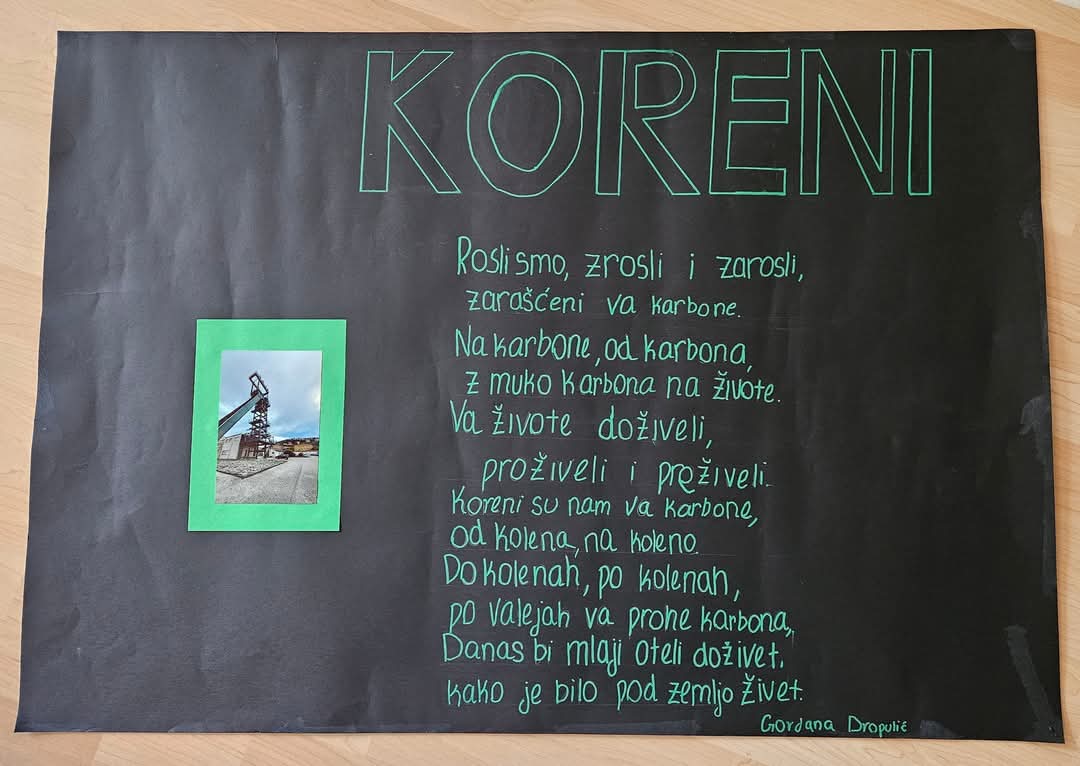 KORENI
Rosli smo, zrosli i zarosli,
zarašćeni va karbone.
Na karbone, od karbona,
z muko karbona na živote.
Va živote doživeli,
proživeli i preživeli.
Koreni su nam va karbone,
od kolena, na koleno.
Do kolenah, po kolenah,
po valejah va prohe karbona,
Danas bi mlaji oteli doživet,
kako je bilo pod zemljo živet.
Gordana Dropulić